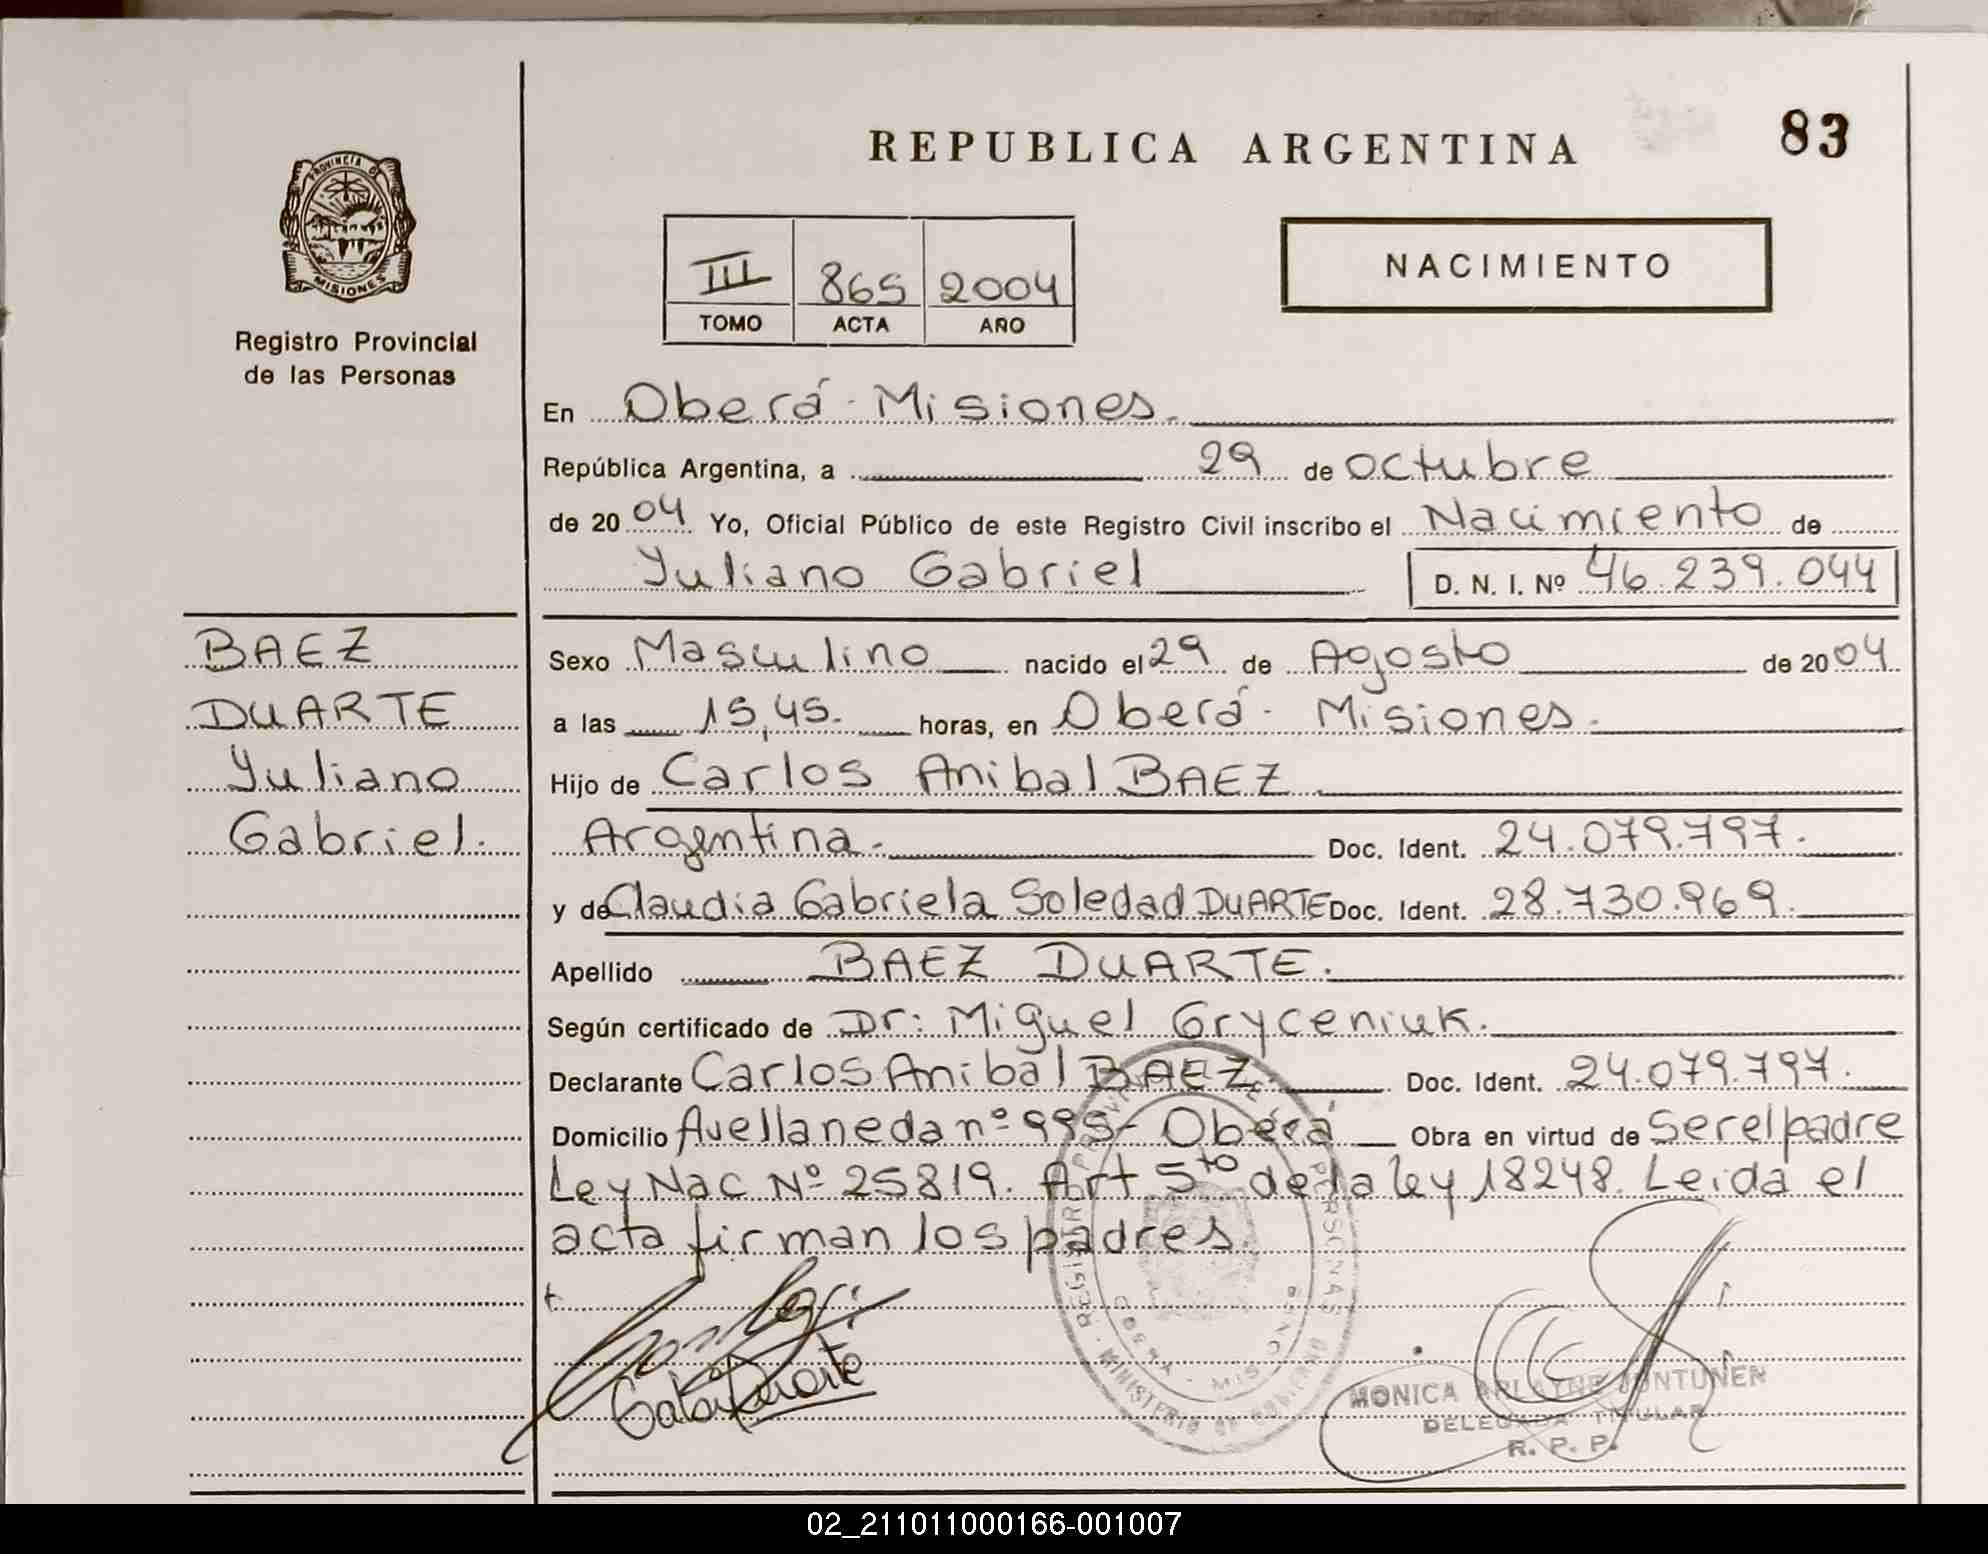 REPUBLICA ARGENTINA
83
PROVINCIA DE
MISIONES
Registro Provincial
de las Personas
III 865 2004
TOMO ACTA AÑO
NACIMIENTO
En Oberá - Misiones.
República Argentina, a 29 de octubre
de 2004 Yo, Oficial Público de este Registro Civil inscribo el Nacimiento de
Yuliano Gabriel D. N. I. Nº 46.239.044
BAEZ
DUARTE
Yuliano
Gabriel.
Sexo Masculino nacido el 29 de Agosto de 2004
a las 15,45. horas, en Oberá - Misiones.
Hijo de Carlos Anibal BAEZ
Argentina. Doc. Ident. 24.079.797.
y de Claudia Gabriela Soledad DUARTE Doc. Ident. 28.730.969.
Apellido BAEZ DUARTE.
Según certificado de Dr: Miguel Gryceniuk.
Declarante Carlos Anibal BAEZ Doc. Ident. 24.079.797.
Domicilio Avellaneda nº 995- Oberá Obra en virtud de Ser el padre
Ley Nac Nº 25819. Art 5to de la ley 18248. Leida el
acta firman los padres.
Duarte
MINISTERIO DE GOBIERNO
MONICA JUNTUNEN
DELEGADA TITULAR
R. P. P.
02_211011000166-001007